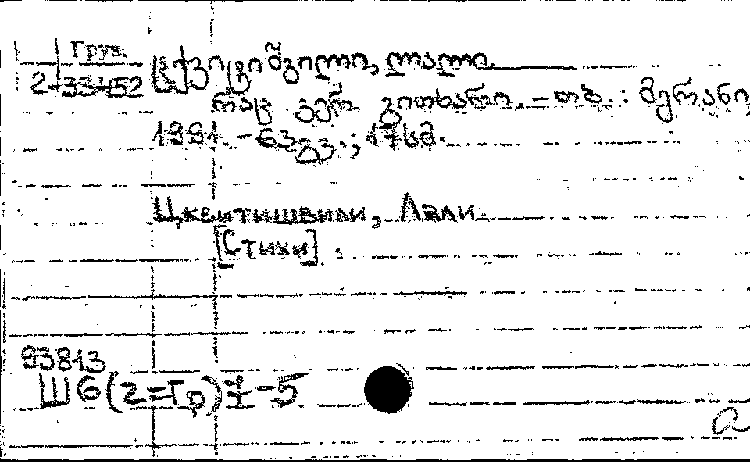 Груз.
2-33452
ცქვიტიშვილი, ლალი.
რაც ვერ გითხარი. – თბ. : მერანი,
1991. – 63 გვ. ; 17 სმ.
Цквитишвили, Лали.
[Стихи].
93813
Ш6(2=Гр)7-5
a